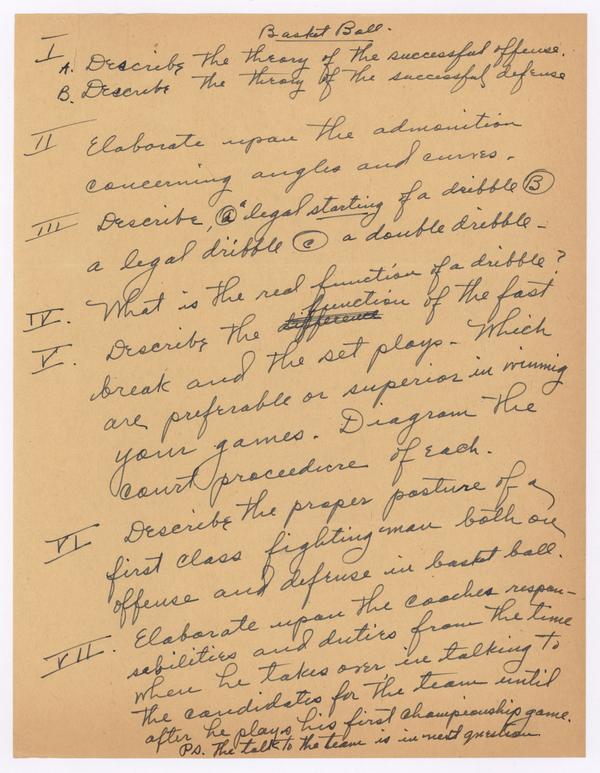 Basket Ball.
I
A. Describe the theory of the successful offense.
B. Describe the theory of the successful defense
II Elaborate upon the admonition
concerning angles and curves.
III Describe, (a) a legal starting of a dribble (B)
a legal dribble (c) a double dribble -
IV. What is the real function of a dribble?
V. Describe the difference function of the fast
break and the set plays - Which
are preferable or superior in winnig
your games. Diagram the
court proceedure of each.
VI Describe the proper posture of a
first class fighting man both on
offense and defense in basket ball.
VII. Elaborate upon the coaches respon-
sabilities and duties from the time
when he takes over, in talking to
the candidates for the team until
after he plays his first championship game.
P.S. The talk to the team is in next question